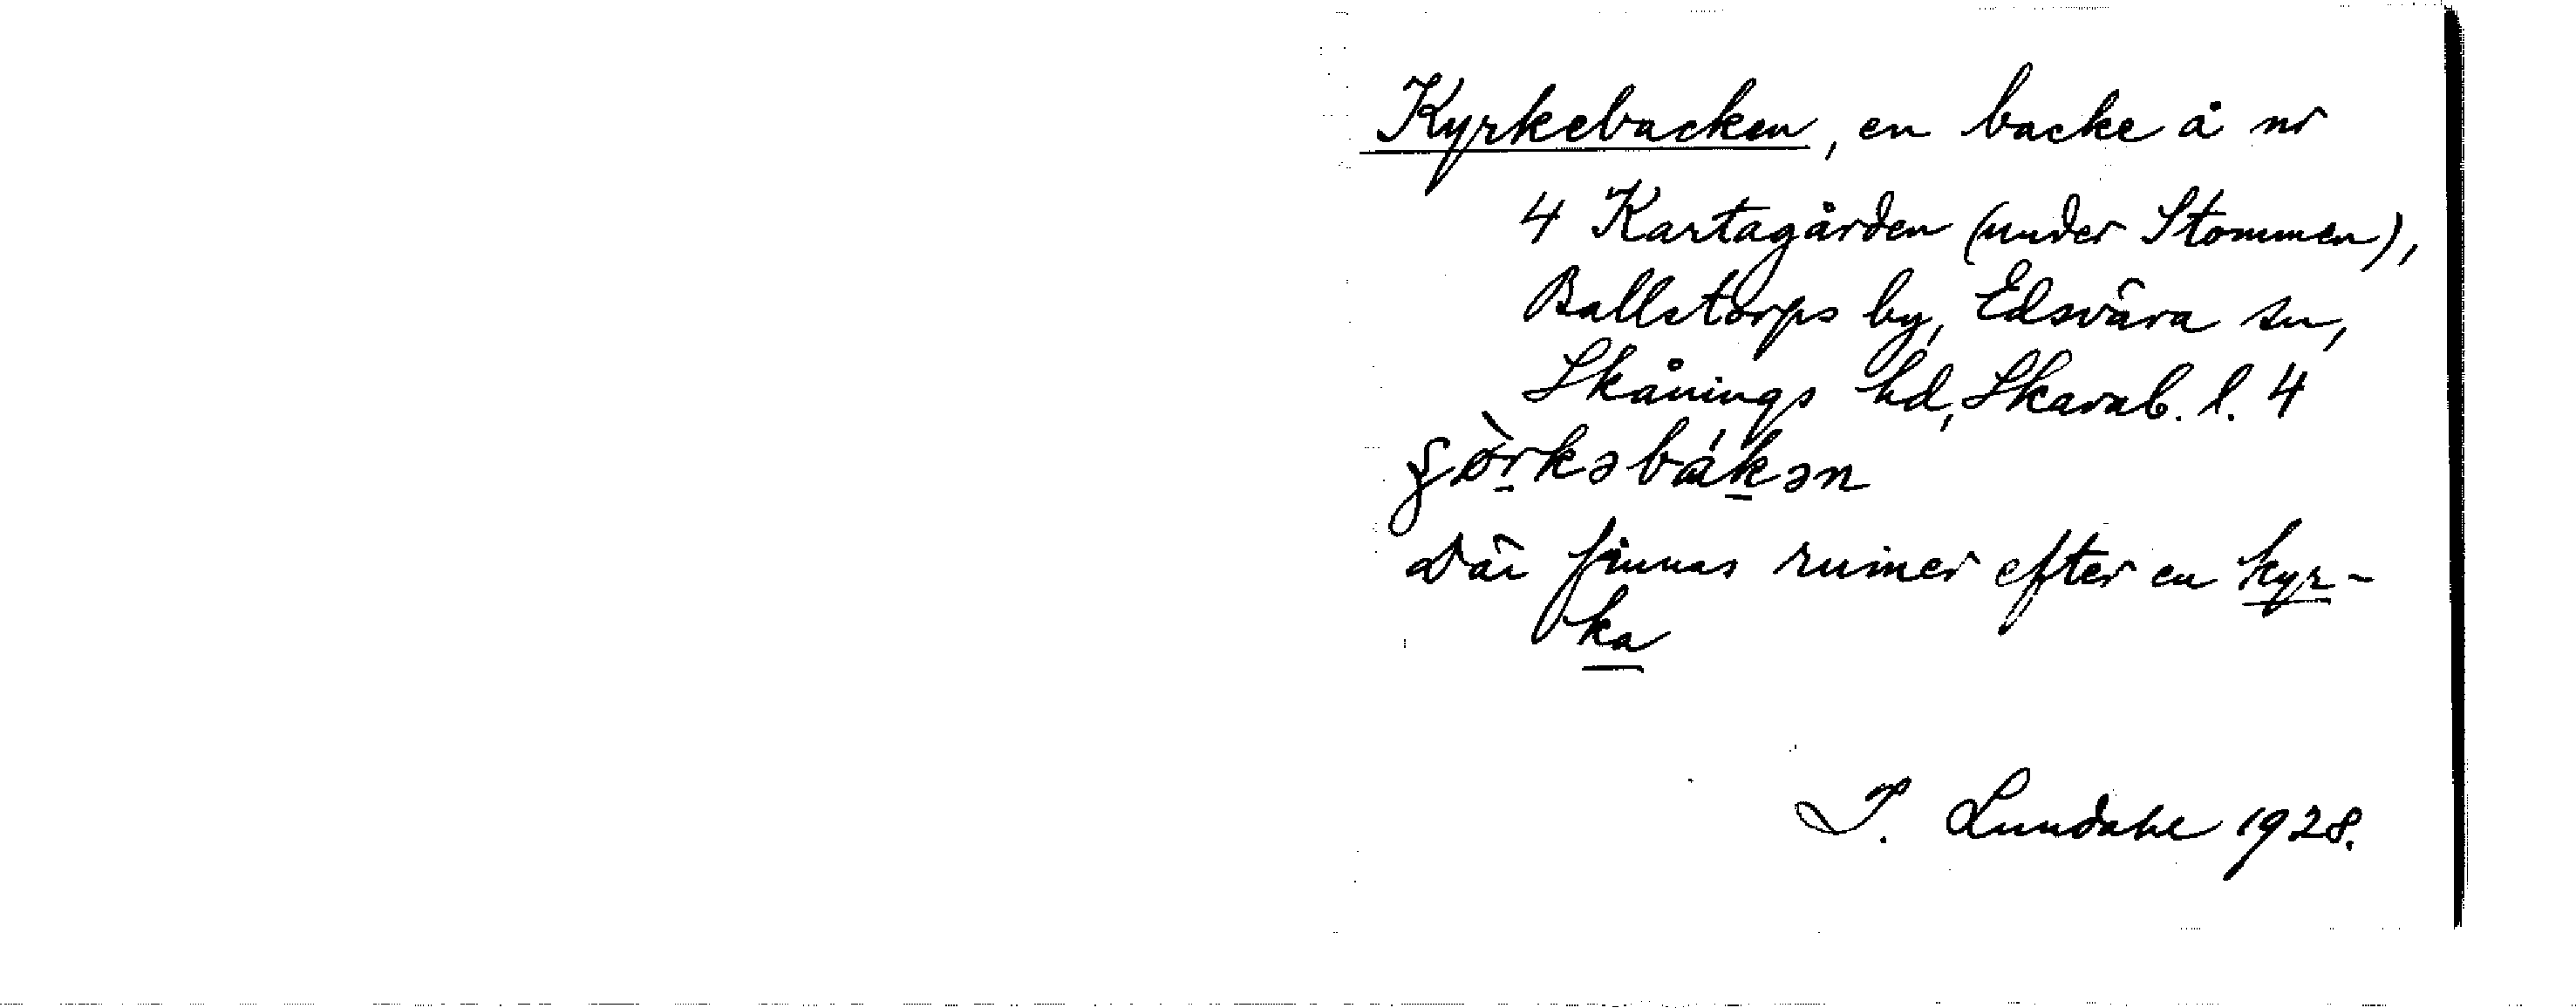 Kyrkebacken, en backe å nr
4 Kartagården (under Stommen),
Ballstorps by, Edsvära sn,
Skånings hd, Skarab. l. 4
Där finnas ruiner efter en kyr-
ka
I. Lundahl 1928.